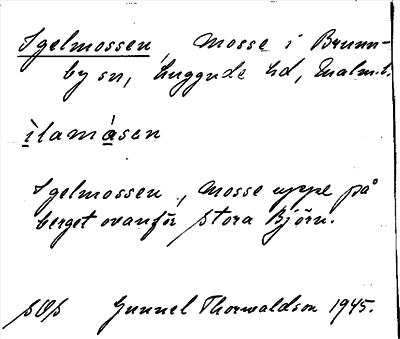 Igelmossen, Mosse i Brunn-
by sn, Luggude hd, Malm.l.
ìlamåsen
Igelmossen, Mosse uppe på
berget ovanför Stora Björn.
Gunnel Thorwaldson 1945.